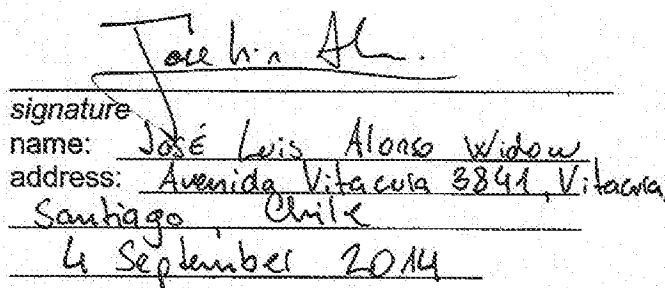 signature
name: José Luis Alonso Widow
address: Avenida Vitacura 3841, Vitacura
Santiago Chile
4 September 2014